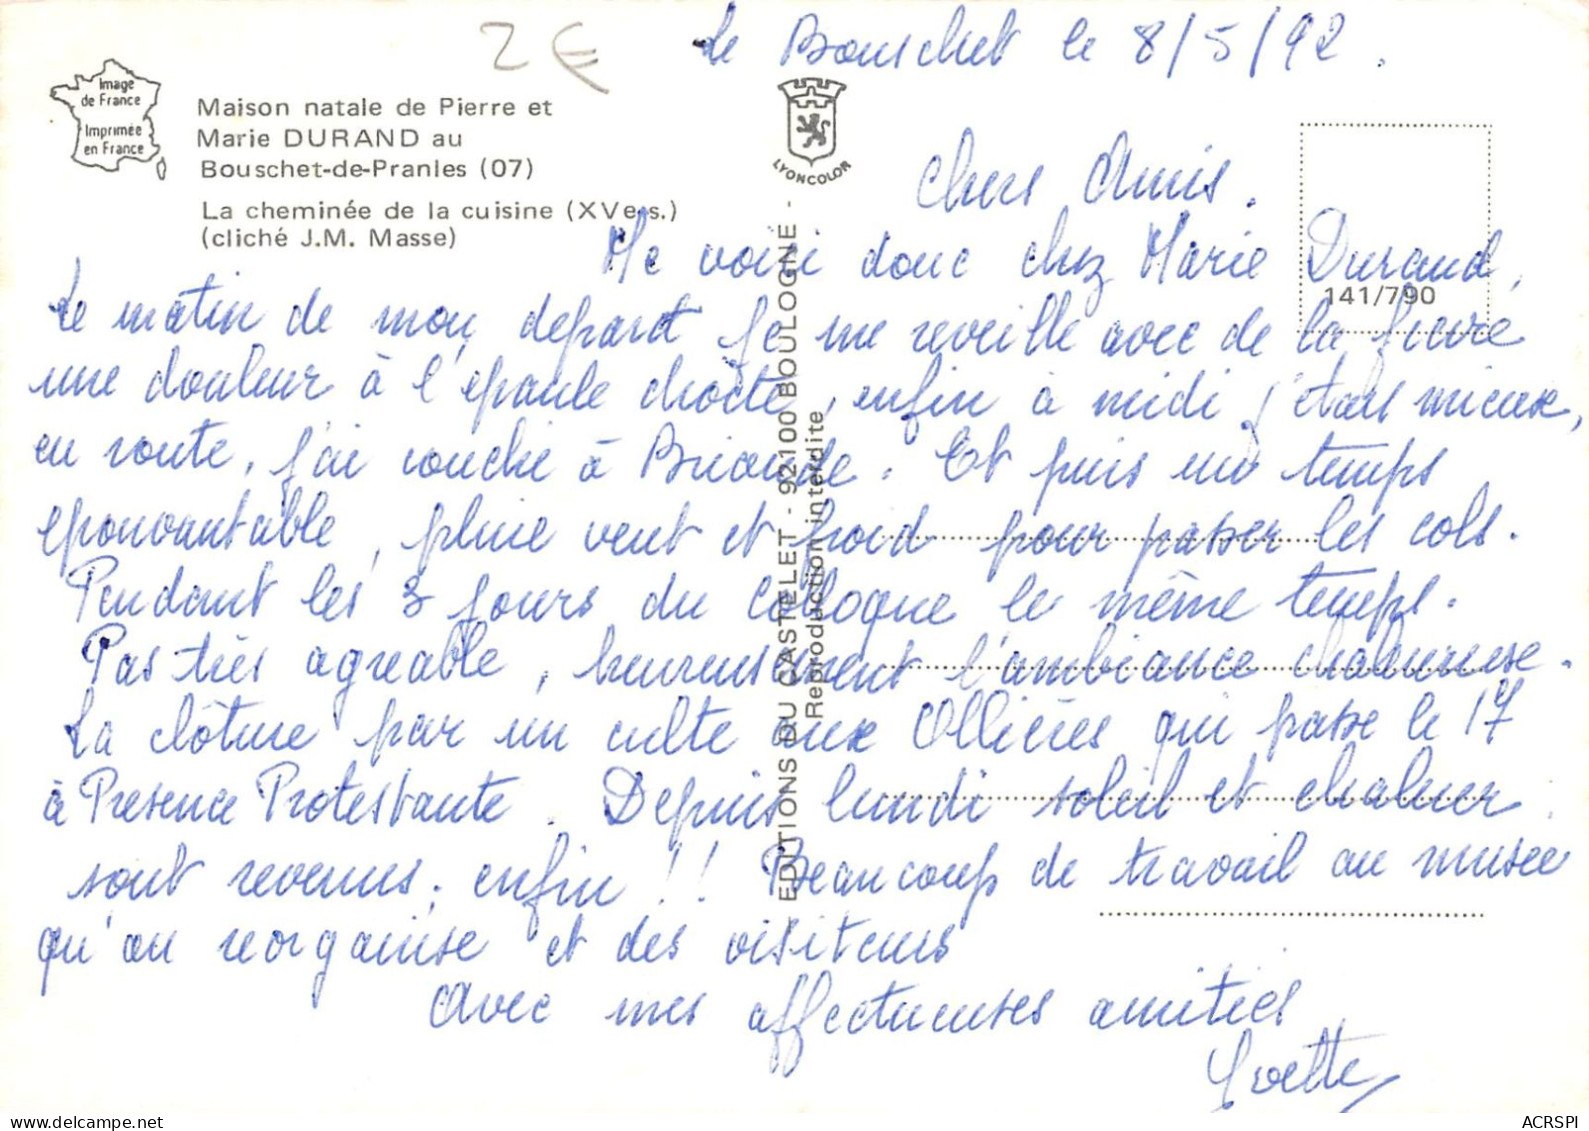 2€
Le Bouschet le 8/5/92.
Image
de France
Imprimée
en France
Maison natale de Pierre et
Marie DURAND au
Bouschet-de-Pranles (07)
La cheminée de la cuisine (XVe s.)
(cliché J.M. Masse)
LYONCOLOR
EDITIONS DU CASTELET - 92100 BOULOGNE -
Reproduction interdite
141/790
Chers Amis.
Me voici donc chez Marie Durand,
Le matin de mon depart je me reveille avec de la fievre
une douleur à l'epaule droite, enfin à midi j'étais mieux,
en route, j'ai couché à Brioude. Et puis un temps
epouvantable, pluie vent et froid pour passer les cols.
Pendant les 3 jours du Colloque le même temps.
Pas très agreable, heureusement l'ambiance chaleureuse.
La clôture par un culte aux Ollières qui passe le 17
à Presence Protestante. Depuis lundi soleil et chaleur
sont revenus. enfin !! Beaucoup de travail au musee
qu'on reorganise et des visiteurs
Avec mes affectueuses amitiés
Yvette
ACRSPI